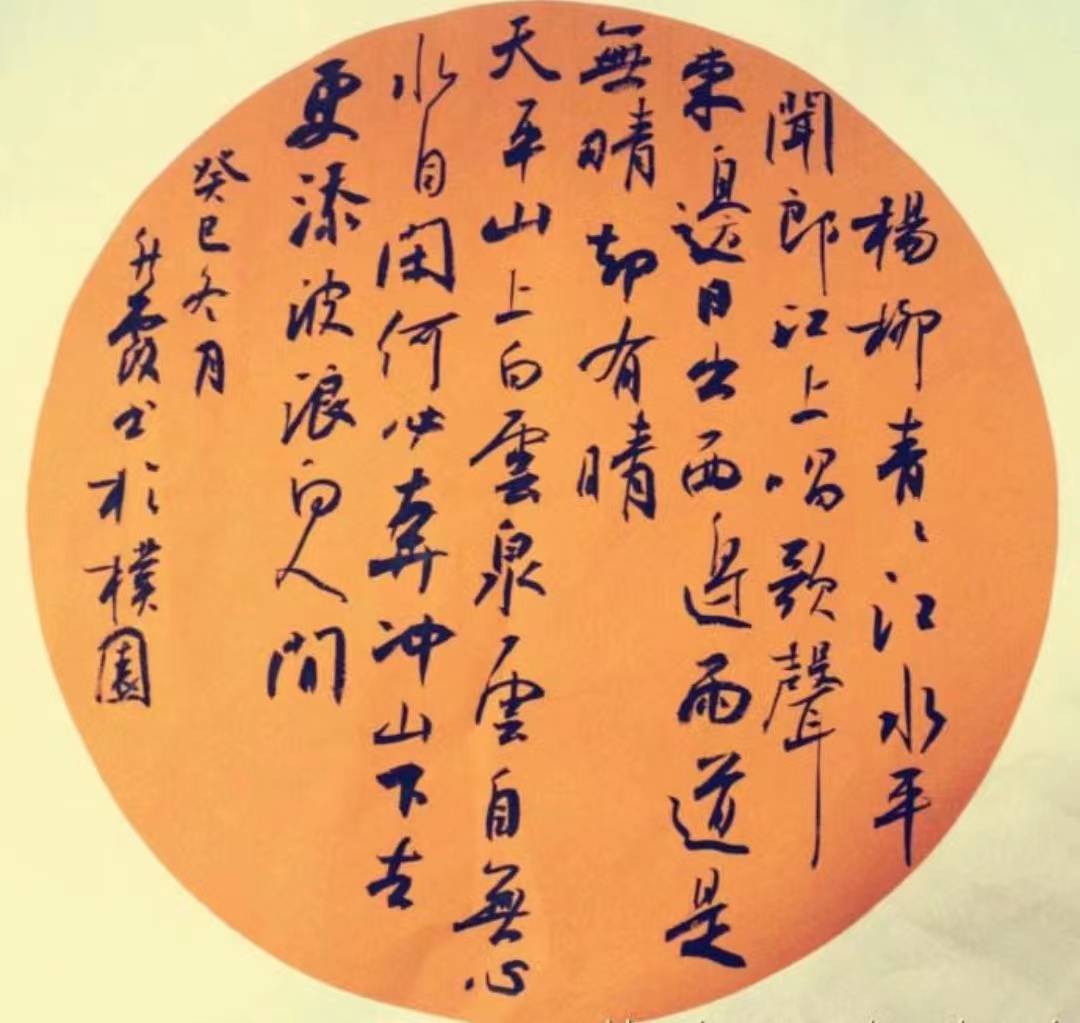 楊柳青〻江水平
聞郎江上唱歌聲
東邊日出西邊雨道是
無晴却有晴
天平山上白雲泉雲自無心
水自閑何必奔沖山下去
更添波浪向人間
癸巳冬月
升霞书於樸園